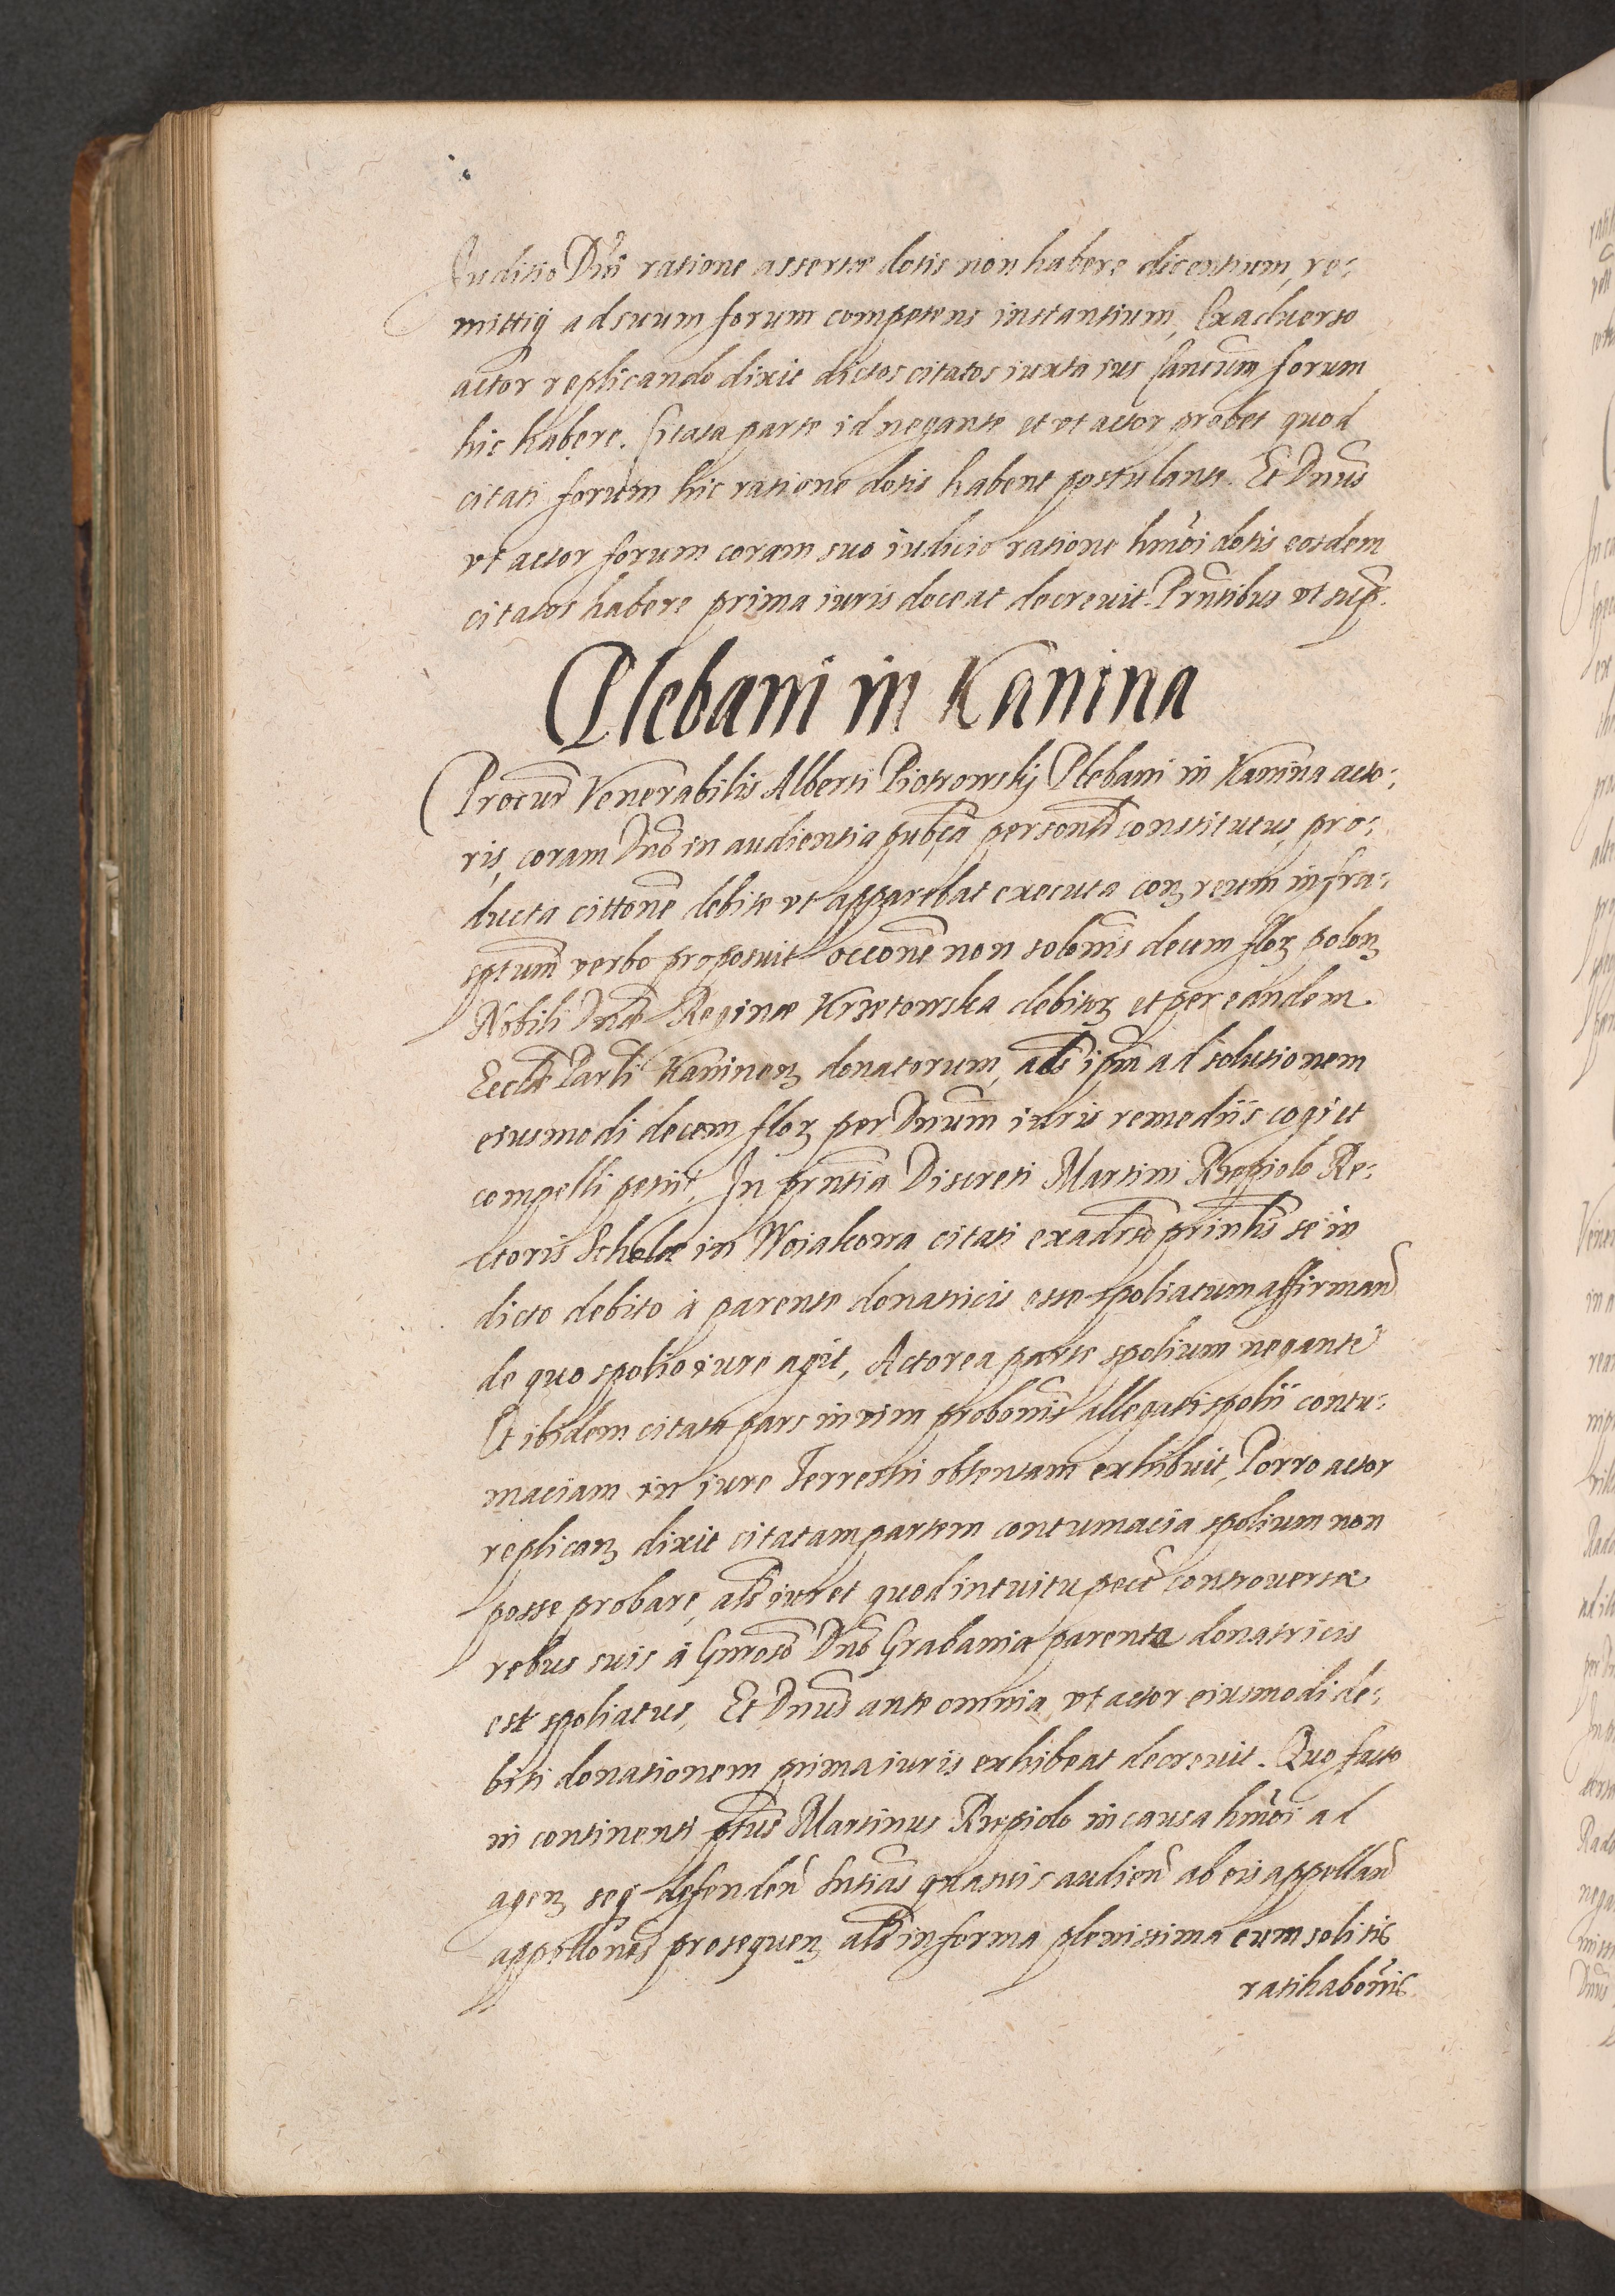 Iuditio Dni ratione assertæ dotis non habere dicentium, re:
mittiq ad suum forum competens instantium, Ex aduerso
actor replicando dixit dictos citatos iuxta ius Canicum forum
hic habere. Citata parte id negante et vt actor probet quod
citati forum hic ratione dotis habent postulante. Et Dnus
vt actor forum coram suo iudicio ratione hmoi dotis eosdem
citatos habere prima iuris doceat decreuit. Prntibus vt sup.
Plebani in Kanina
Procur Venerabilis Alberti Piotrowskij Plebani in Kanina acto:
ris, coram Dno in audientia publca personlr constitutus, pro:
ducta cittone debite vt apparebat executa conz reum infra:
sptum verbo proposuit occone non solonis decem florz polonz
Nobili Dnæ Reginæ Krzetowska debitorz et per eandem
Ecclæ Parli Kaninenz donatorum, als ipm ad solutionem
eiusmodi decem florz per Dnum iuris remedijs cogi et
compelli petijt. In prntia Discreti Martini Rzepiolo Re:
ctoris Scholæ in Woiakowa citati ex adrso prinlis se in
dicto debito à parente donatricis esse spoliatum affirman
de quo spolio iure agit, Actorea parte spolium negante
Et ibidem citata pars in vim probonis allegati spolij contu:
maciam in iure Terrestri obtentam exhibuit, Porro actor
replicanz dixit citatam partem contumacia spolium non
posse probare, als iuret quod intuitu pecce controuersæ
rebus suis à Gnroso Dno Grabania parente donatricis
est spoliatus, Et Dnus ante omnia vt actor eiusmodi de:
biti donationem prima iuris exhibeat decreuit. Quo facto
in continenti ptus Martinus Rzepiolo in causa hmoi ad
agenz seq defenden sntias quasuis audien ab eis appellan
appellones prosequenz als in forma plenissima cum solitis
ratihabonis